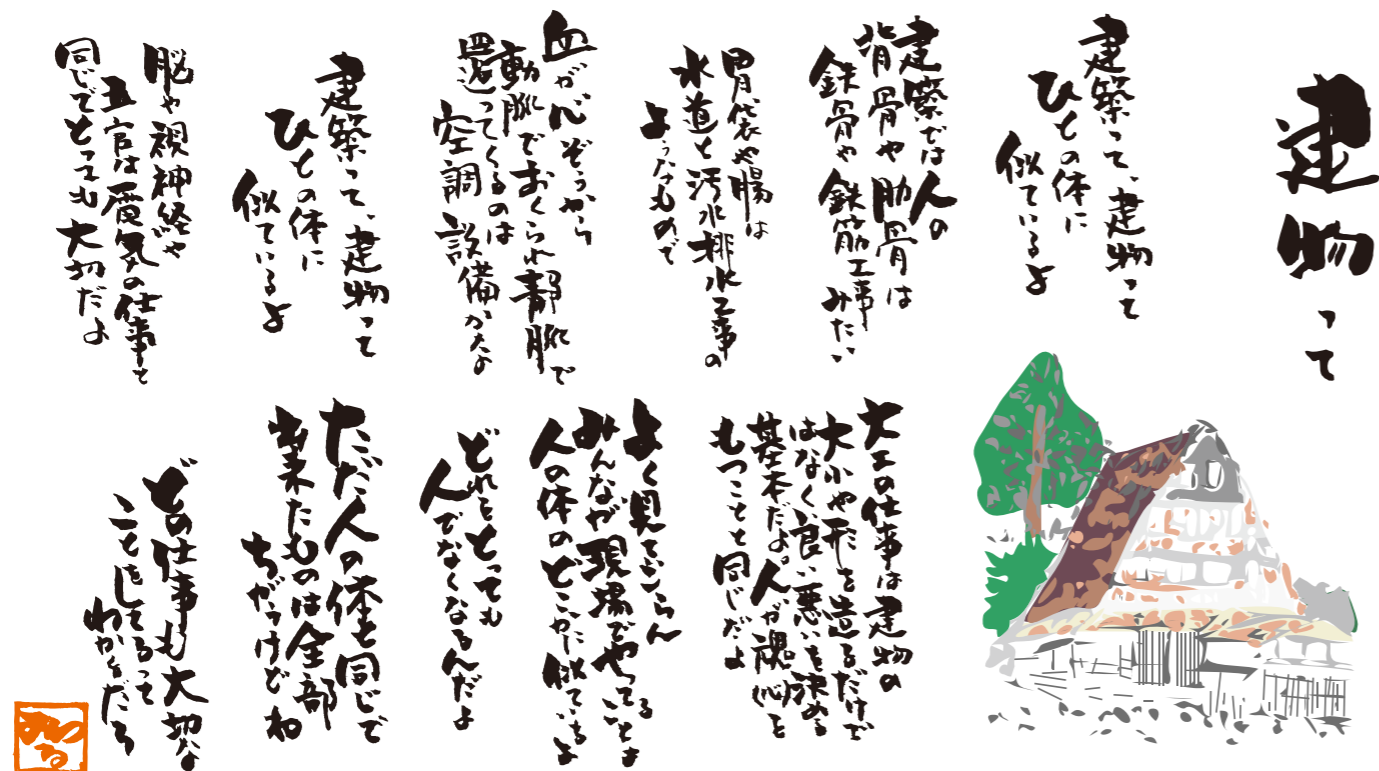 建物って
建築って、建物って
ひとの体に
似ているよ
建築では人の
背骨や肋骨は
鉄骨や鉄筋工事
みたい
胃袋や腸は
水道と汚水排水工事の
ようなもので
血が心ぞうから
動脈でおくられ静脈で
還ってくるのは
空調設備かなぁ
建築って、建物って
ひとの体に
似ているよ
脳や視神経や
五官は電気の仕事と
同じでとっても大切だよ
大工の仕事は建物の
大小や形を造るだけで
はなく良い悪いを決める
基本だよ。人が魂(心)を
もつことと同じだよ
よく見てごらん
みんなが現場でやってることは
人の体のどこかに似ているよ
どれをとっても
人でなくなるんだよ
ただ人の体と同じで
出来たものは全部
ちがうけどね
どの仕事も大切な
ことをしてるって
わかるだろ